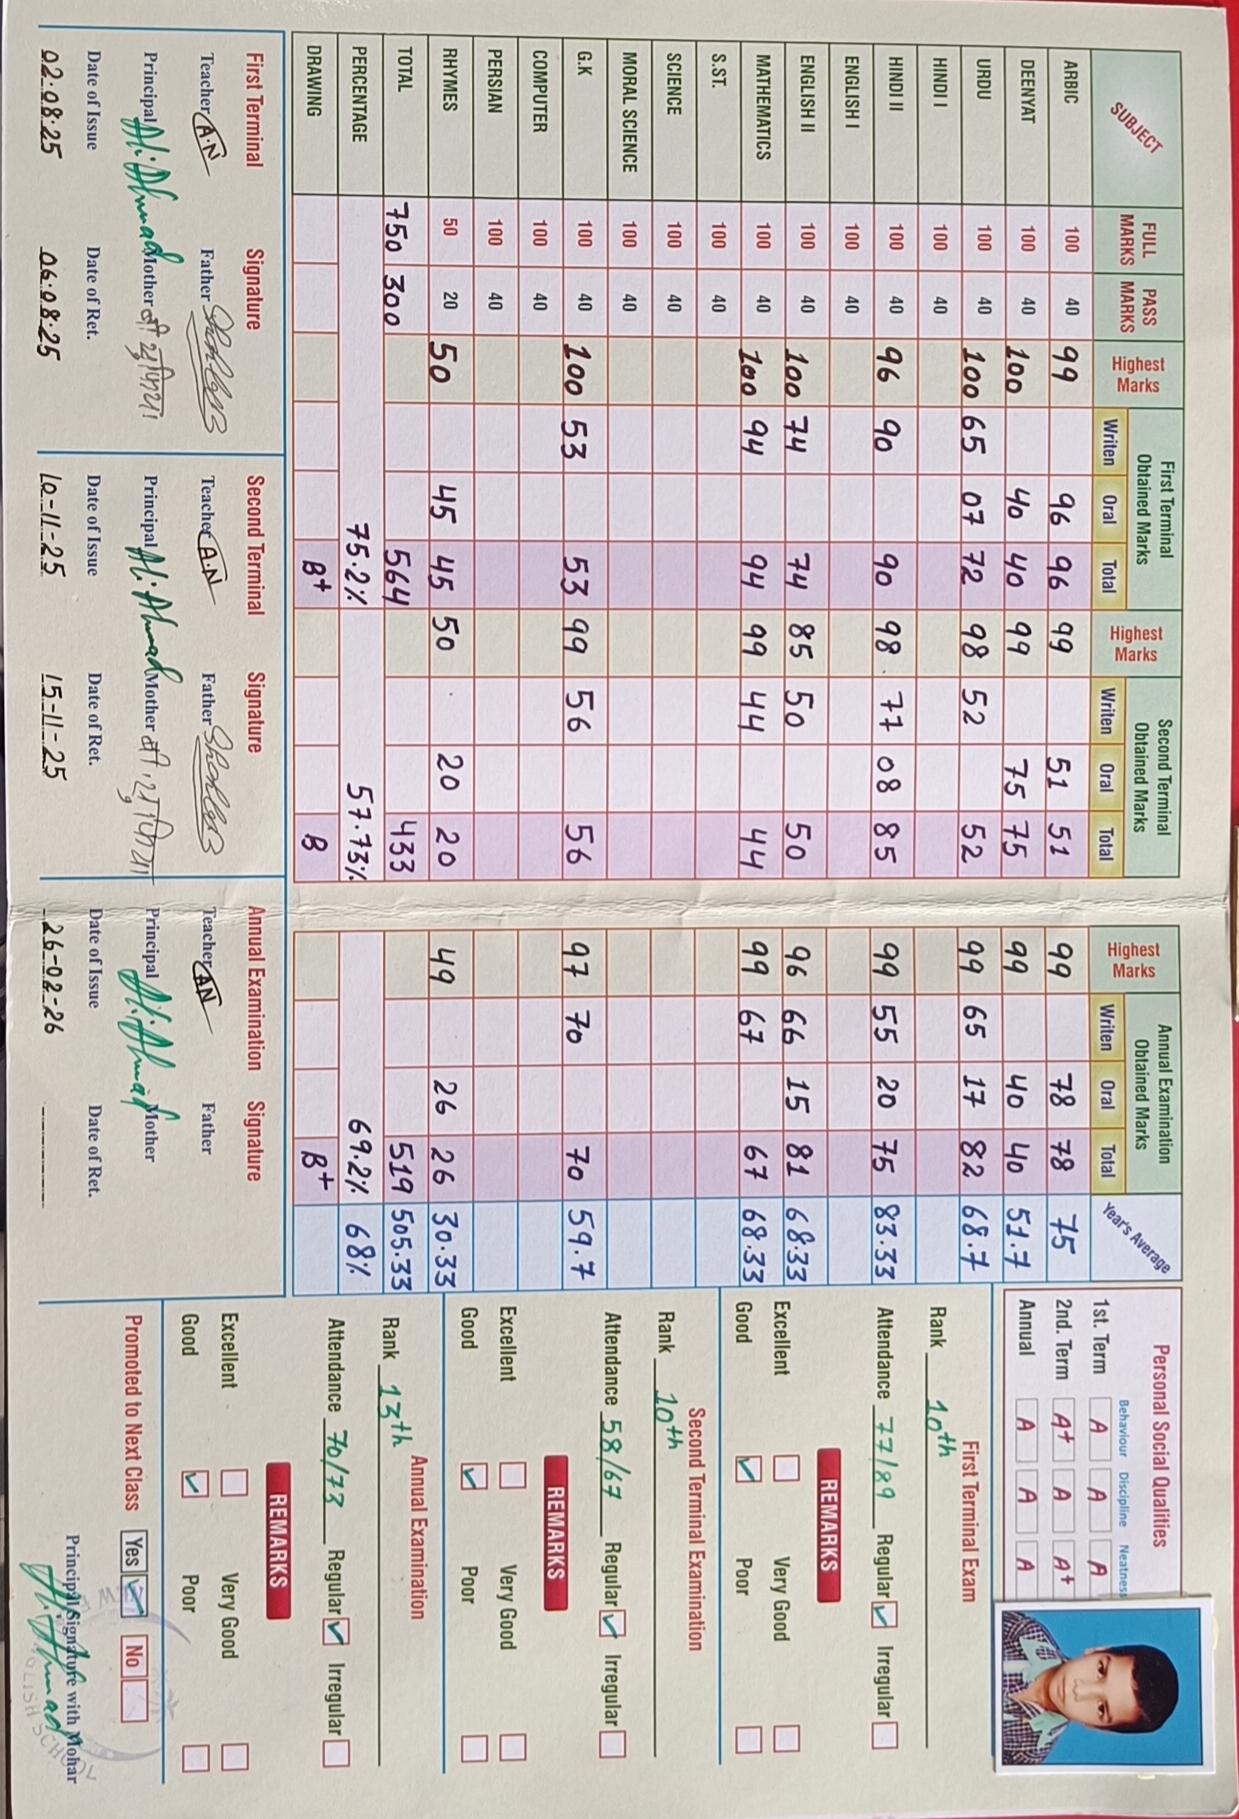 SUBJECT FULL MARKS PASS MARKS Highest Marks First Terminal Obtained Marks Writen Oral Total Highest Marks Second Terminal Obtained Marks Writen Oral Total Highest Marks Annual Examination Obtained Marks Writen Oral Total Year's Average
ARBIC 100 40 99 96 96 99 51 51 99 78 78 75
DEENYAT 100 40 100 40 40 99 75 75 99 40 40 51.7
URDU 100 40 100 65 07 72 98 52 52 99 65 17 82 68.7
HINDI I 100 40
HINDI II 100 40 96 90 90 98 77 08 85 99 55 20 75 83.33
ENGLISH I 100 40
ENGLISH II 100 40 100 74 74 85 50 50 96 66 15 81 68.33
MATHEMATICS 100 40 100 94 94 99 44 44 99 67 67 68.33
S.ST. 100 40
SCIENCE 100 40
MORAL SCIENCE 100 40
G.K 100 40 100 53 53 99 56 56 97 70 70 59.7
COMPUTER 100 40
PERSIAN 100 40
RHYMES 50 20 50 45 45 50 20 20 49 26 26 30.33
TOTAL 750 300 564 433 519 505.33
PERCENTAGE 75.2% 57.73% 69.2% 68%
DRAWING B+ B B+
First Terminal Signature
Teacher A.N Father
Principal Ali Ahmad Mother
Date of Issue Date of Ret.
02.08.25 06.08.25
Second Terminal Signature
Teacher A.N Father
Principal Ali Ahmad Mother
Date of Issue Date of Ret.
10-11-25 15-11-25
Annual Examination Signature
Teacher AN Father
Principal Ali Ahmad Mother
Date of Issue Date of Ret.
26-02-26
Personal Social Qualities
Behaviour Discipline Neatness
1st. Term A A A
2nd. Term A+ A A+
Annual A A A
First Terminal Exam
Rank 10th
Attendance 77/89 Regular Irregular
REMARKS
Excellent Very Good
Good Poor
Second Terminal Examination
Rank 10th
Attendance 58/67 Regular Irregular
REMARKS
Excellent Very Good
Good Poor
Annual Examination
Rank 13th
Attendance 70/73 Regular Irregular
REMARKS
Excellent Very Good
Good Poor
Promoted to Next Class Yes No
Principal Signature with Mohar
Ali Ahmad